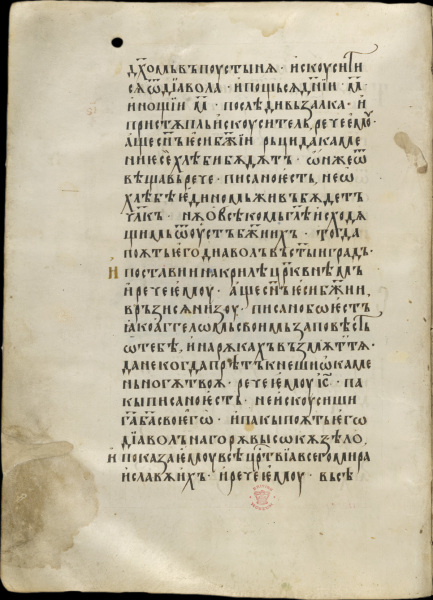 дх҃омь въ поустыня · искоусити
сѧ ѿ дїавола · и пощьсѧ дн҃їи м҃
и нощїи м҃ · послѣди възалка · и
пристѫпль искоуситель, рече ѥмоу ·
аще сн҃ъ ѥси бж҃їи рьци да каме
нїе се хлѣби бѫдѫтъ · ѡн же ѿ
вѣщавь рече · писано ѥсть, не ѡ
хлѣбѣ ѥдиномь живъ бѫдетъ
чл҃къ · нѫ ѡ всѣкомь гл҃ѣ исходѧ
щимь ѿ оустъ бж҃їихъ · тогда
поѧть ѥго дїаволъ въ ст҃ыи градъ ·
и постави и на крилѣ црк҃внѣмъ
и рече ѥмоу · аще сн҃ъ ѥси бж҃їи,
връзи сѧ низоу · писано бо ѥстъ
ꙗко аггеломь своимь заповѣсть
ѡ тебѣ, и на рѫкахъ възмѫт тѧ ·
да некогда прѣтъкнеши ѡ каме
нь ногѫ твоѫ · рече ѥмоу іс҃ · па
кы писано ѥсть · не искоусиши
га҃ ба҃ своѥгѡ · и пакы поѧть ѥгѡ
дїаволъ на горѫ высокѫ зѣло,
и показа ѥмоу всѣ цр҃твїа всего мира
и славѫ ихъ · и рече ѥмоу · въсѣ